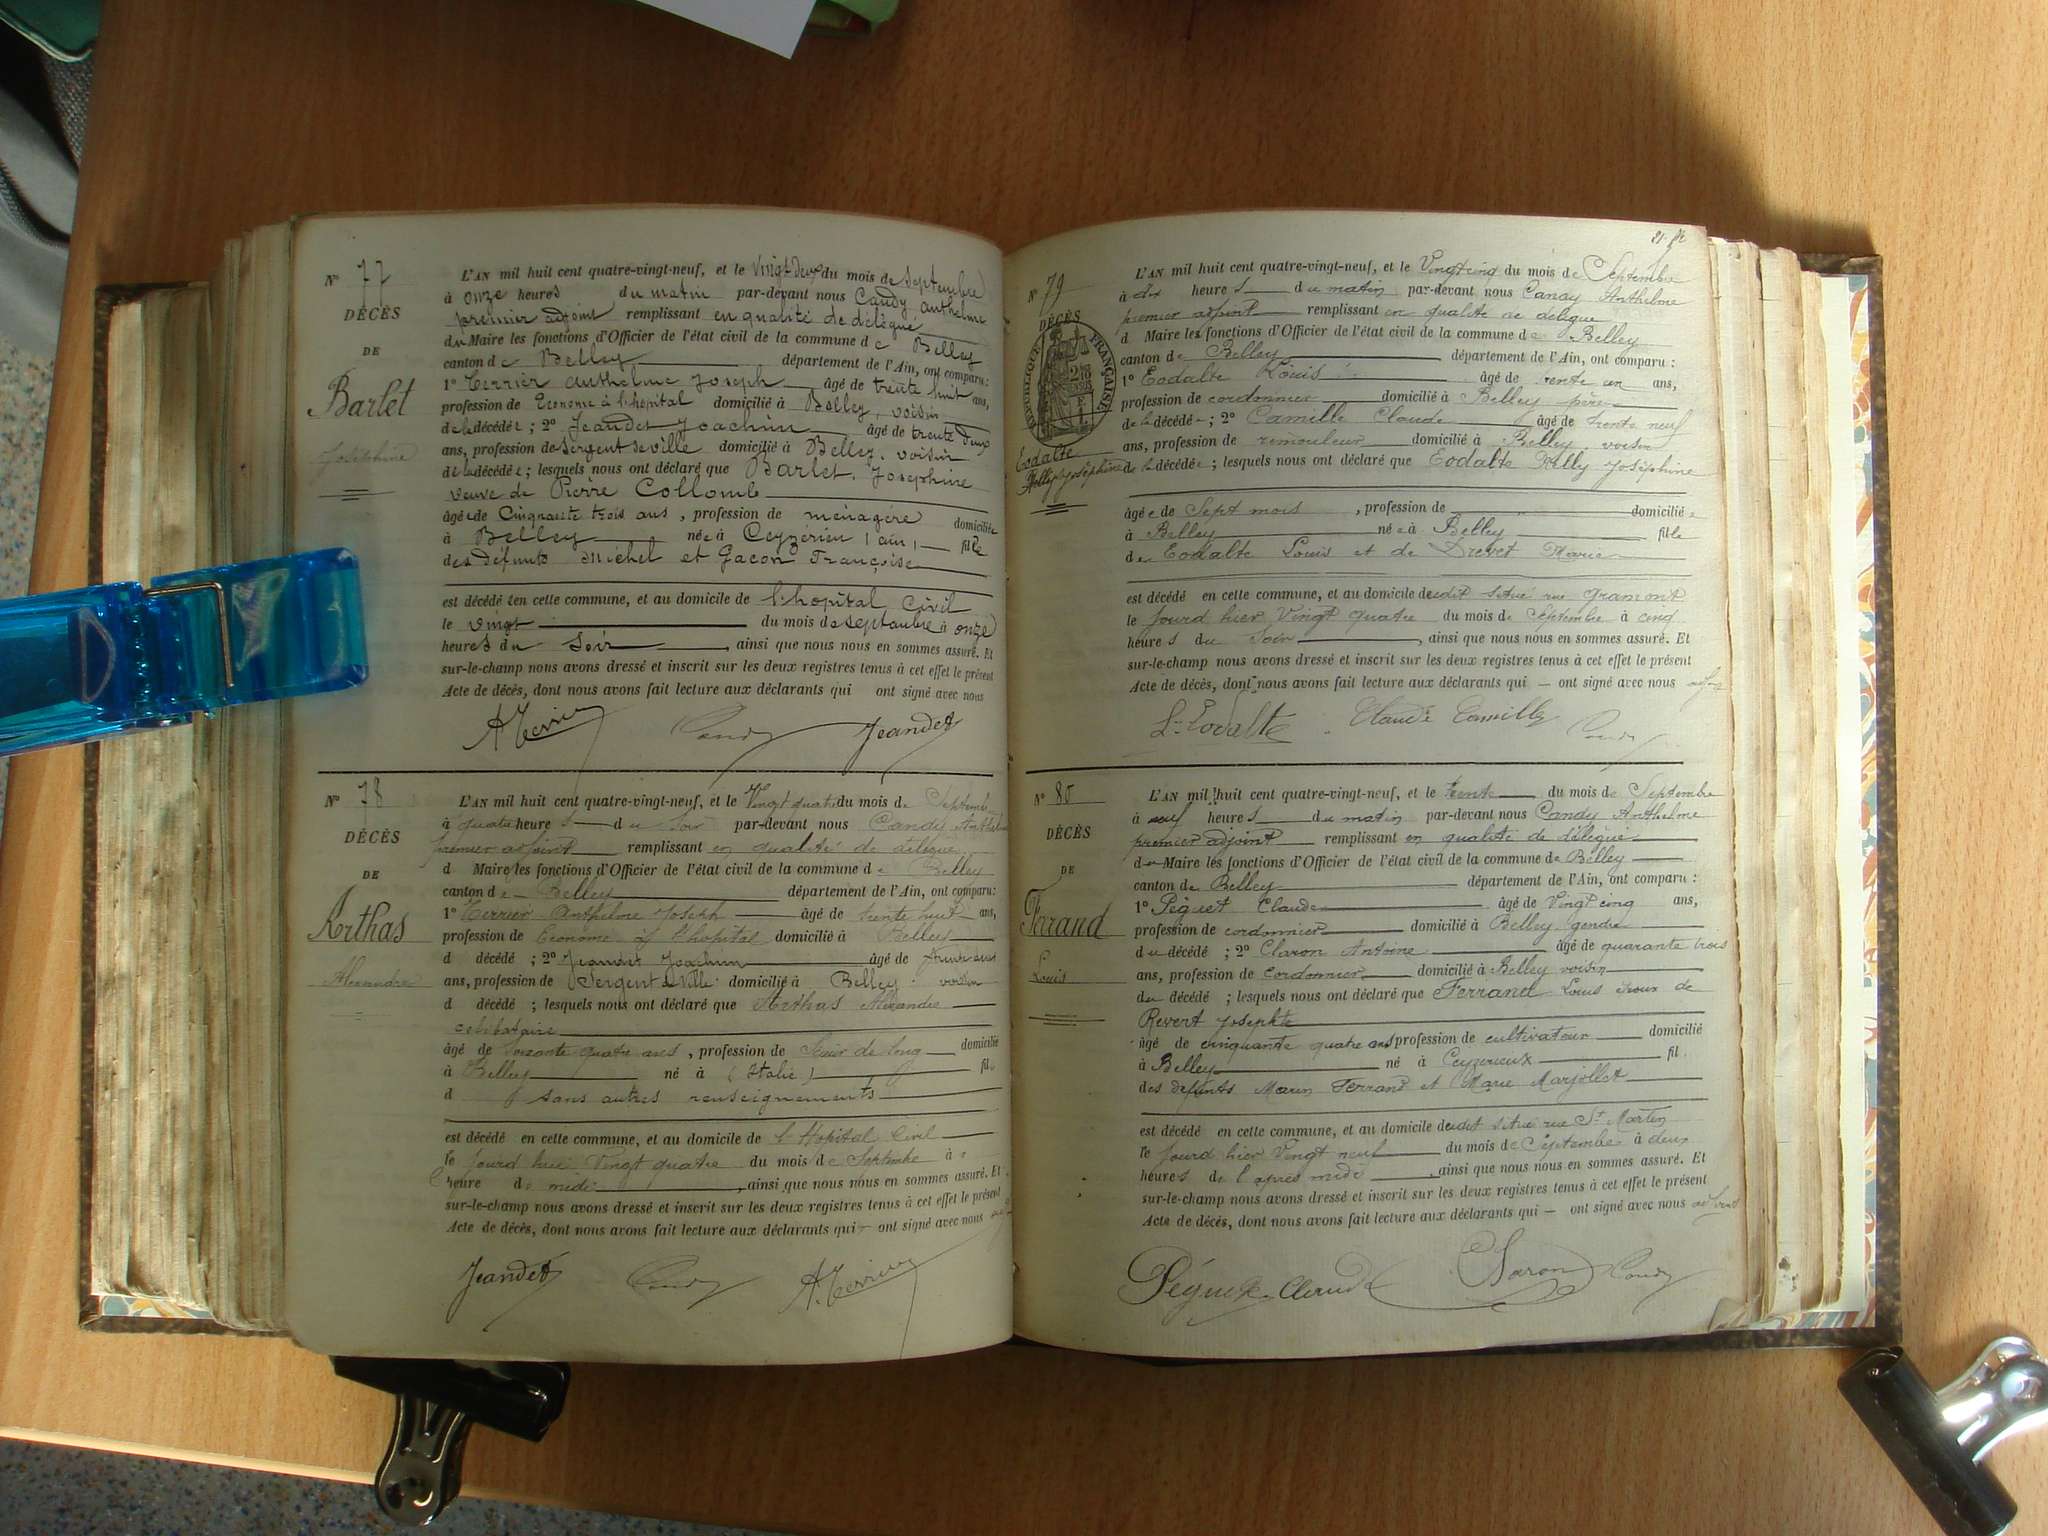 N° 77
DÉCÈS
DE
Bartet
Joséphine
L'AN mil huit cent quatre-vingt-neuf, et le Vingt deux du mois de Septembre
à onze heures du matin par-devant nous Candy anthelme
premier adjoint remplissant en qualité de délégué
du Maire les fonctions d'Officier de l'état civil de la commune de Belley
canton de Belley département de l'Ain, ont comparu :
1° Terrier anthelme Joseph âgé de trente huit ans,
profession de Econome à l'hopital domicilié à Belley, voisin
de la décédée ; 2° Jeandet Joachim âgé de trente deux
ans, profession de Sergent de ville domicilié à Belley, voisin
de la décédée ; lesquels nous ont déclaré que Bartet Josephine
veuve de Pierre Collomb
âgée de Cinquante trois ans, profession de ménagère domiciliée
à Belley née à Ceyzérieu (ain) fille
des défunts Michel et Gacon Françoise
est décédée en cette commune, et au domicile de l'hopital civil
le vingt du mois de septembre à onze
heures du Soir, ainsi que nous nous en sommes assuré. Et
sur-le-champ nous avons dressé et inscrit sur les deux registres tenus à cet effet le présent
Acte de décès, dont nous avons fait lecture aux déclarants qui ont signé avec nous
A Terrier Candy Jeandet
N° 78
DÉCÈS
DE
Arthas
Alexandre
L'AN mil huit cent quatre-vingt-neuf, et le Vingt quatre du mois de Septembre
à quatre heures du Soir par-devant nous Candy Anthelme
premier adjoint remplissant en qualité de délégué
d Maire les fonctions d'Officier de l'état civil de la commune de Belley
canton de Belley département de l'Ain, ont comparu :
1° Terrier Anthelme Joseph âgé de trente huit ans,
profession de Econome à l'hopital domicilié à Belley
d décédé ; 2° Jeandet Joachim âgé de trente deux
ans, profession de Sergent de Ville domicilié à Belley voisin
d décédé ; lesquels nous ont déclaré que Arthas Alexandre
celibataire
âgé de Soixante quatre ans, profession de Scieur de long domicilié
à Belley né à (Italie) fil
d sans autres renseignements
est décédé en cette commune, et au domicile de l'Hopital Civil
le jourd hui Vingt quatre du mois de Septembre à
heure de midi, ainsi que nous nous en sommes assuré. Et
sur-le-champ nous avons dressé et inscrit sur les deux registres tenus à cet effet le présent
Acte de décès, dont nous avons fait lecture aux déclarants qui ont signé avec nous
Jeandet Candy A. Terrier
N° 79
DÉCÈS
RÉPUBLIQUE FRANÇAISE
Eodalte
Nelly Joséphine
L'AN mil huit cent quatre-vingt-neuf, et le Vingt cinq du mois de Septembre
à dix heures du matin par-devant nous Candy Anthelme
premier adjoint remplissant en qualité de délégué
d Maire les fonctions d'Officier de l'état civil de la commune de Belley
canton de Belley département de l'Ain, ont comparu :
1° Eodalte Louis âgé de trente un ans,
profession de cordonnier domicilié à Belley père
de la décédée ; 2° Camille Claude âgé de trente neuf
ans, profession de remouleur domicilié à Belley voisin
de la décédée ; lesquels nous ont déclaré que Eodalte Nelly Joséphine
âgée de Sept mois, profession de domiciliée
à Belley née à Belley fille
de Eodalte Louis et de Drevet Marie
est décédé en cette commune, et au domicile dudit situé rue Gramont
le jourd hier Vingt quatre du mois de Septembre à cinq
heures du Soir, ainsi que nous nous en sommes assuré. Et
sur-le-champ nous avons dressé et inscrit sur les deux registres tenus à cet effet le présent
Acte de décès, dont nous avons fait lecture aux déclarants qui ont signé avec nous
L. Eodalte Claude Camille Candy
N° 80
DÉCÈS
DE
Ferrand
Louis
L'AN mil huit cent quatre-vingt-neuf, et le trente du mois de Septembre
à neuf heures du matin par-devant nous Candy Anthelme
premier adjoint remplissant en qualité de délégué
du Maire les fonctions d'Officier de l'état civil de la commune de Belley
canton de Belley département de l'Ain, ont comparu :
1° Péguet Claude âgé de Vingt cinq ans,
profession de cordonnier domicilié à Belley gendre
du décédé ; 2° Claron Antoine âgé de quarante trois
ans, profession de Cordonnier domicilié à Belley voisin
du décédé ; lesquels nous ont déclaré que Ferrand Louis époux de
Revert Josephte
âgé de cinquante quatre ans profession de cultivateur domicilié
à Belley né à Ceyzerieux fil
des défunts Marin Ferrand et Marie Marjollet
est décédé en cette commune, et au domicile dudit situé rue St Martin
le jourd hier Vingt neuf du mois de Septembre à deux
heures de l'après midi, ainsi que nous nous en sommes assuré. Et
sur-le-champ nous avons dressé et inscrit sur les deux registres tenus à cet effet le présent
Acte de décès, dont nous avons fait lecture aux déclarants qui ont signé avec nous
Péguet Claude Claron Candy